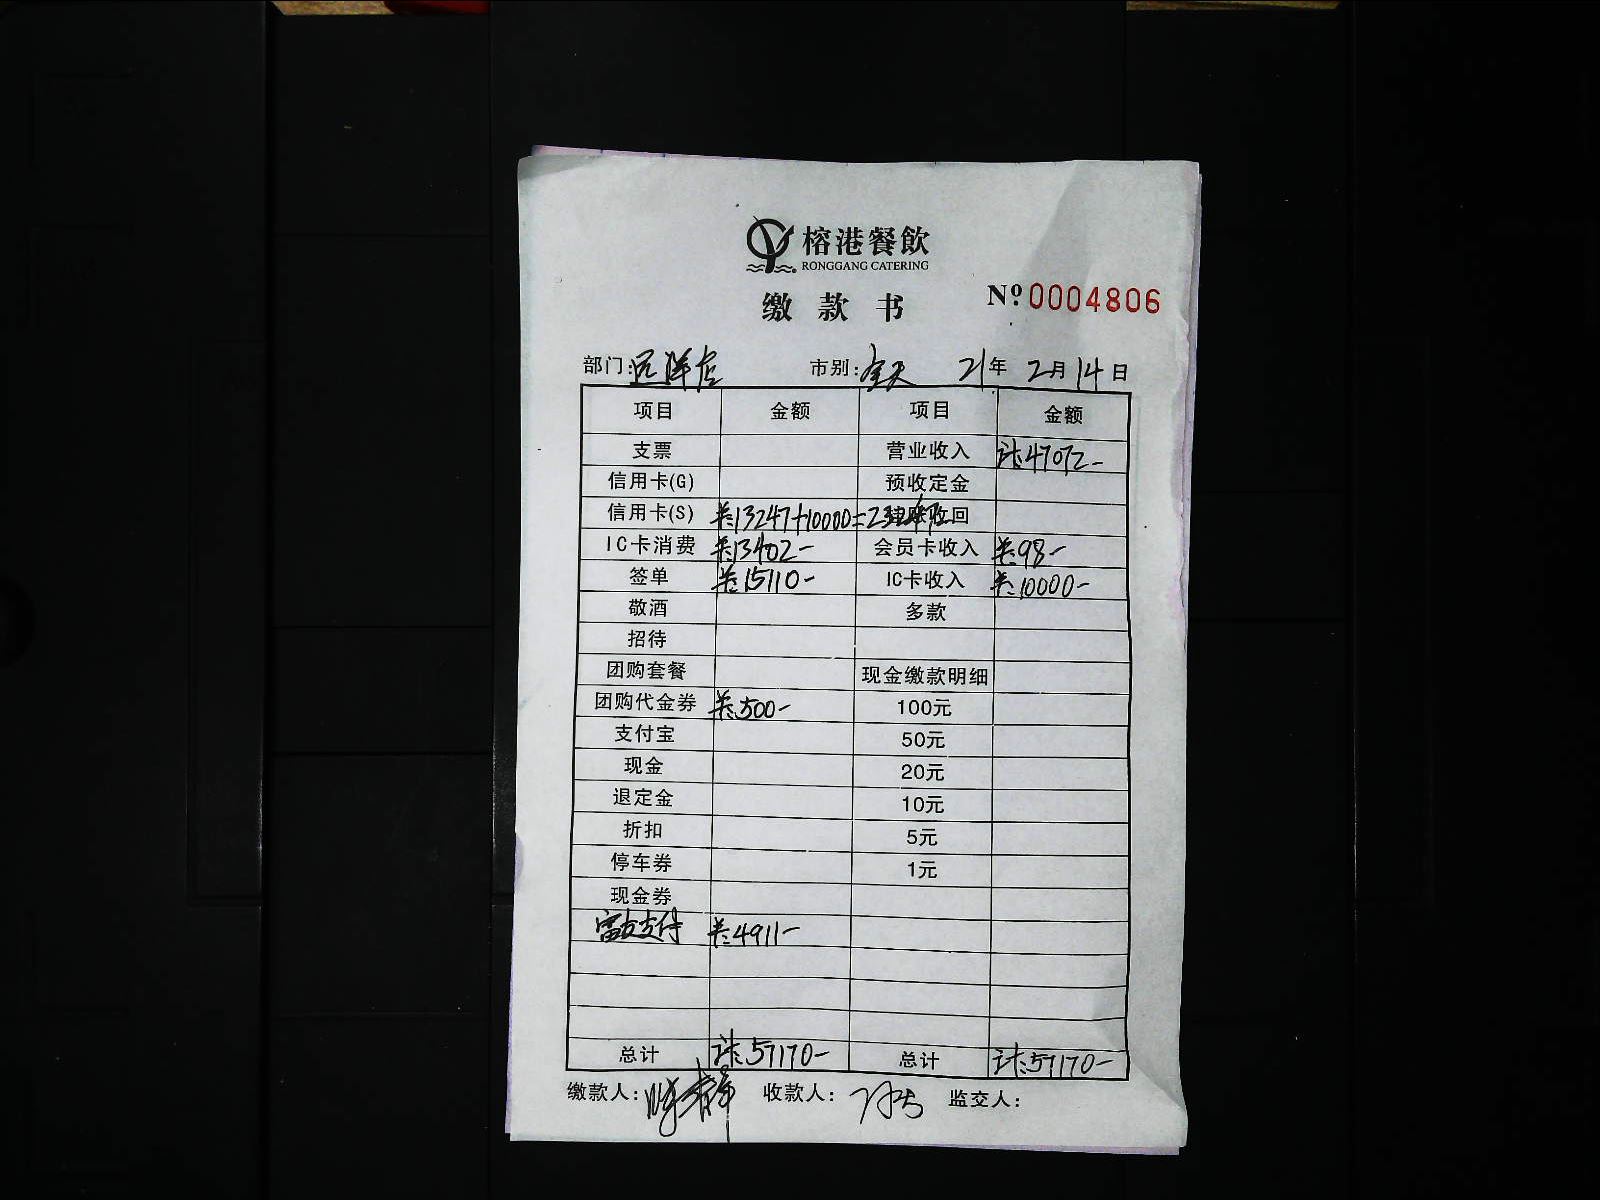 榕港餐飲
RONGGANG CATERING
缴款书 Nº 0004806
部门: 远洋店 市别: 全天 21年 2月 14日
项目 金额 项目 金额
支票 营业收入 计:47072-
信用卡(G) 预收定金
信用卡(S) 关:13247+10000=23247 挂账收回
IC卡消费 关:13402- 会员卡收入 关:98-
签单 关:15110- IC卡收入 关:10000-
敬酒 多款
招待
团购套餐 现金缴款明细
团购代金券 关:500- 100元
支付宝 50元
现金 20元
退定金 10元
折扣 5元
停车券 1元
现金券
富友支付 关:4911-
总计 计:57170- 总计 计:57170-
缴款人: 收款人: 监交人: